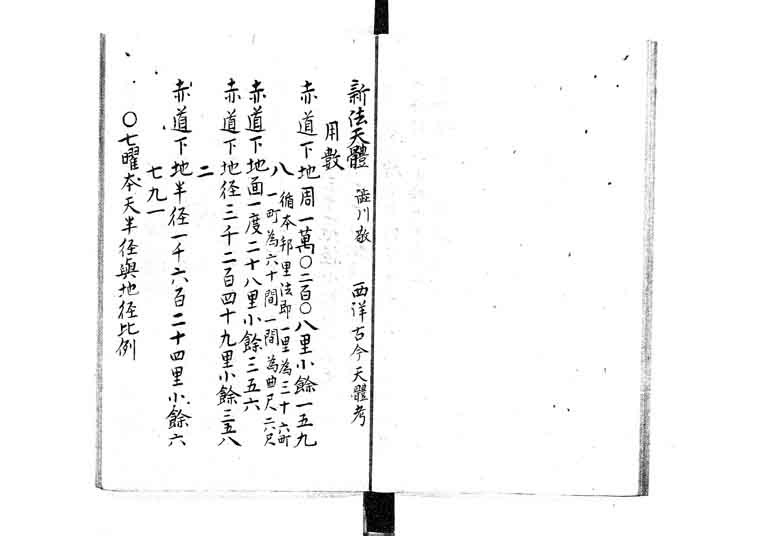 新法天體 澁川敬 西洋古今天體考
用數
赤道下地周一萬〇二百〇八里小餘一五九
八 循本邦里法即一里為三十六町
一町為六十間一間為曲尺六尺
赤道下地面一度二十八里小餘三五六
赤道下地径三千二百四十九里小餘三五八
二
赤道下地半径一千六百二十四里小餘六
七九一
〇七曜本天半径與地径比例